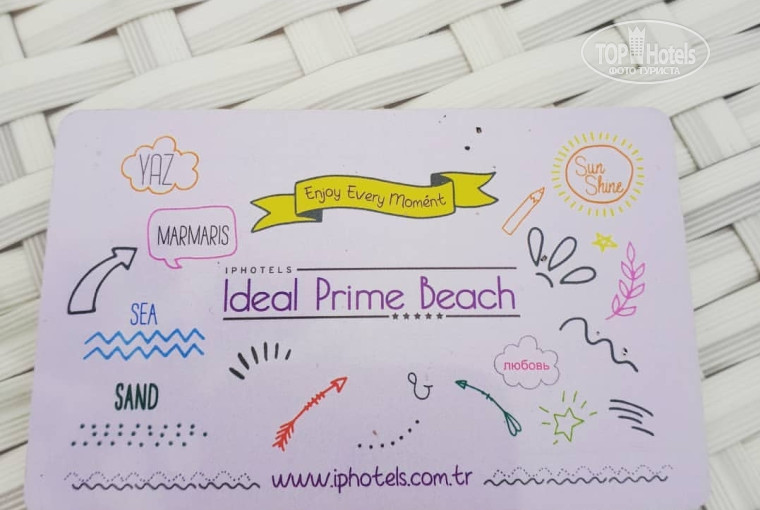 TOP Hotels
ФОТО ТУРИСТА
YAZ
Enjoy Every Momént
Sun
Shine
MARMARIS
IPHOTELS
Ideal Prime Beach
SEA
любовь
SAND
&
www.iphotels.com.tr